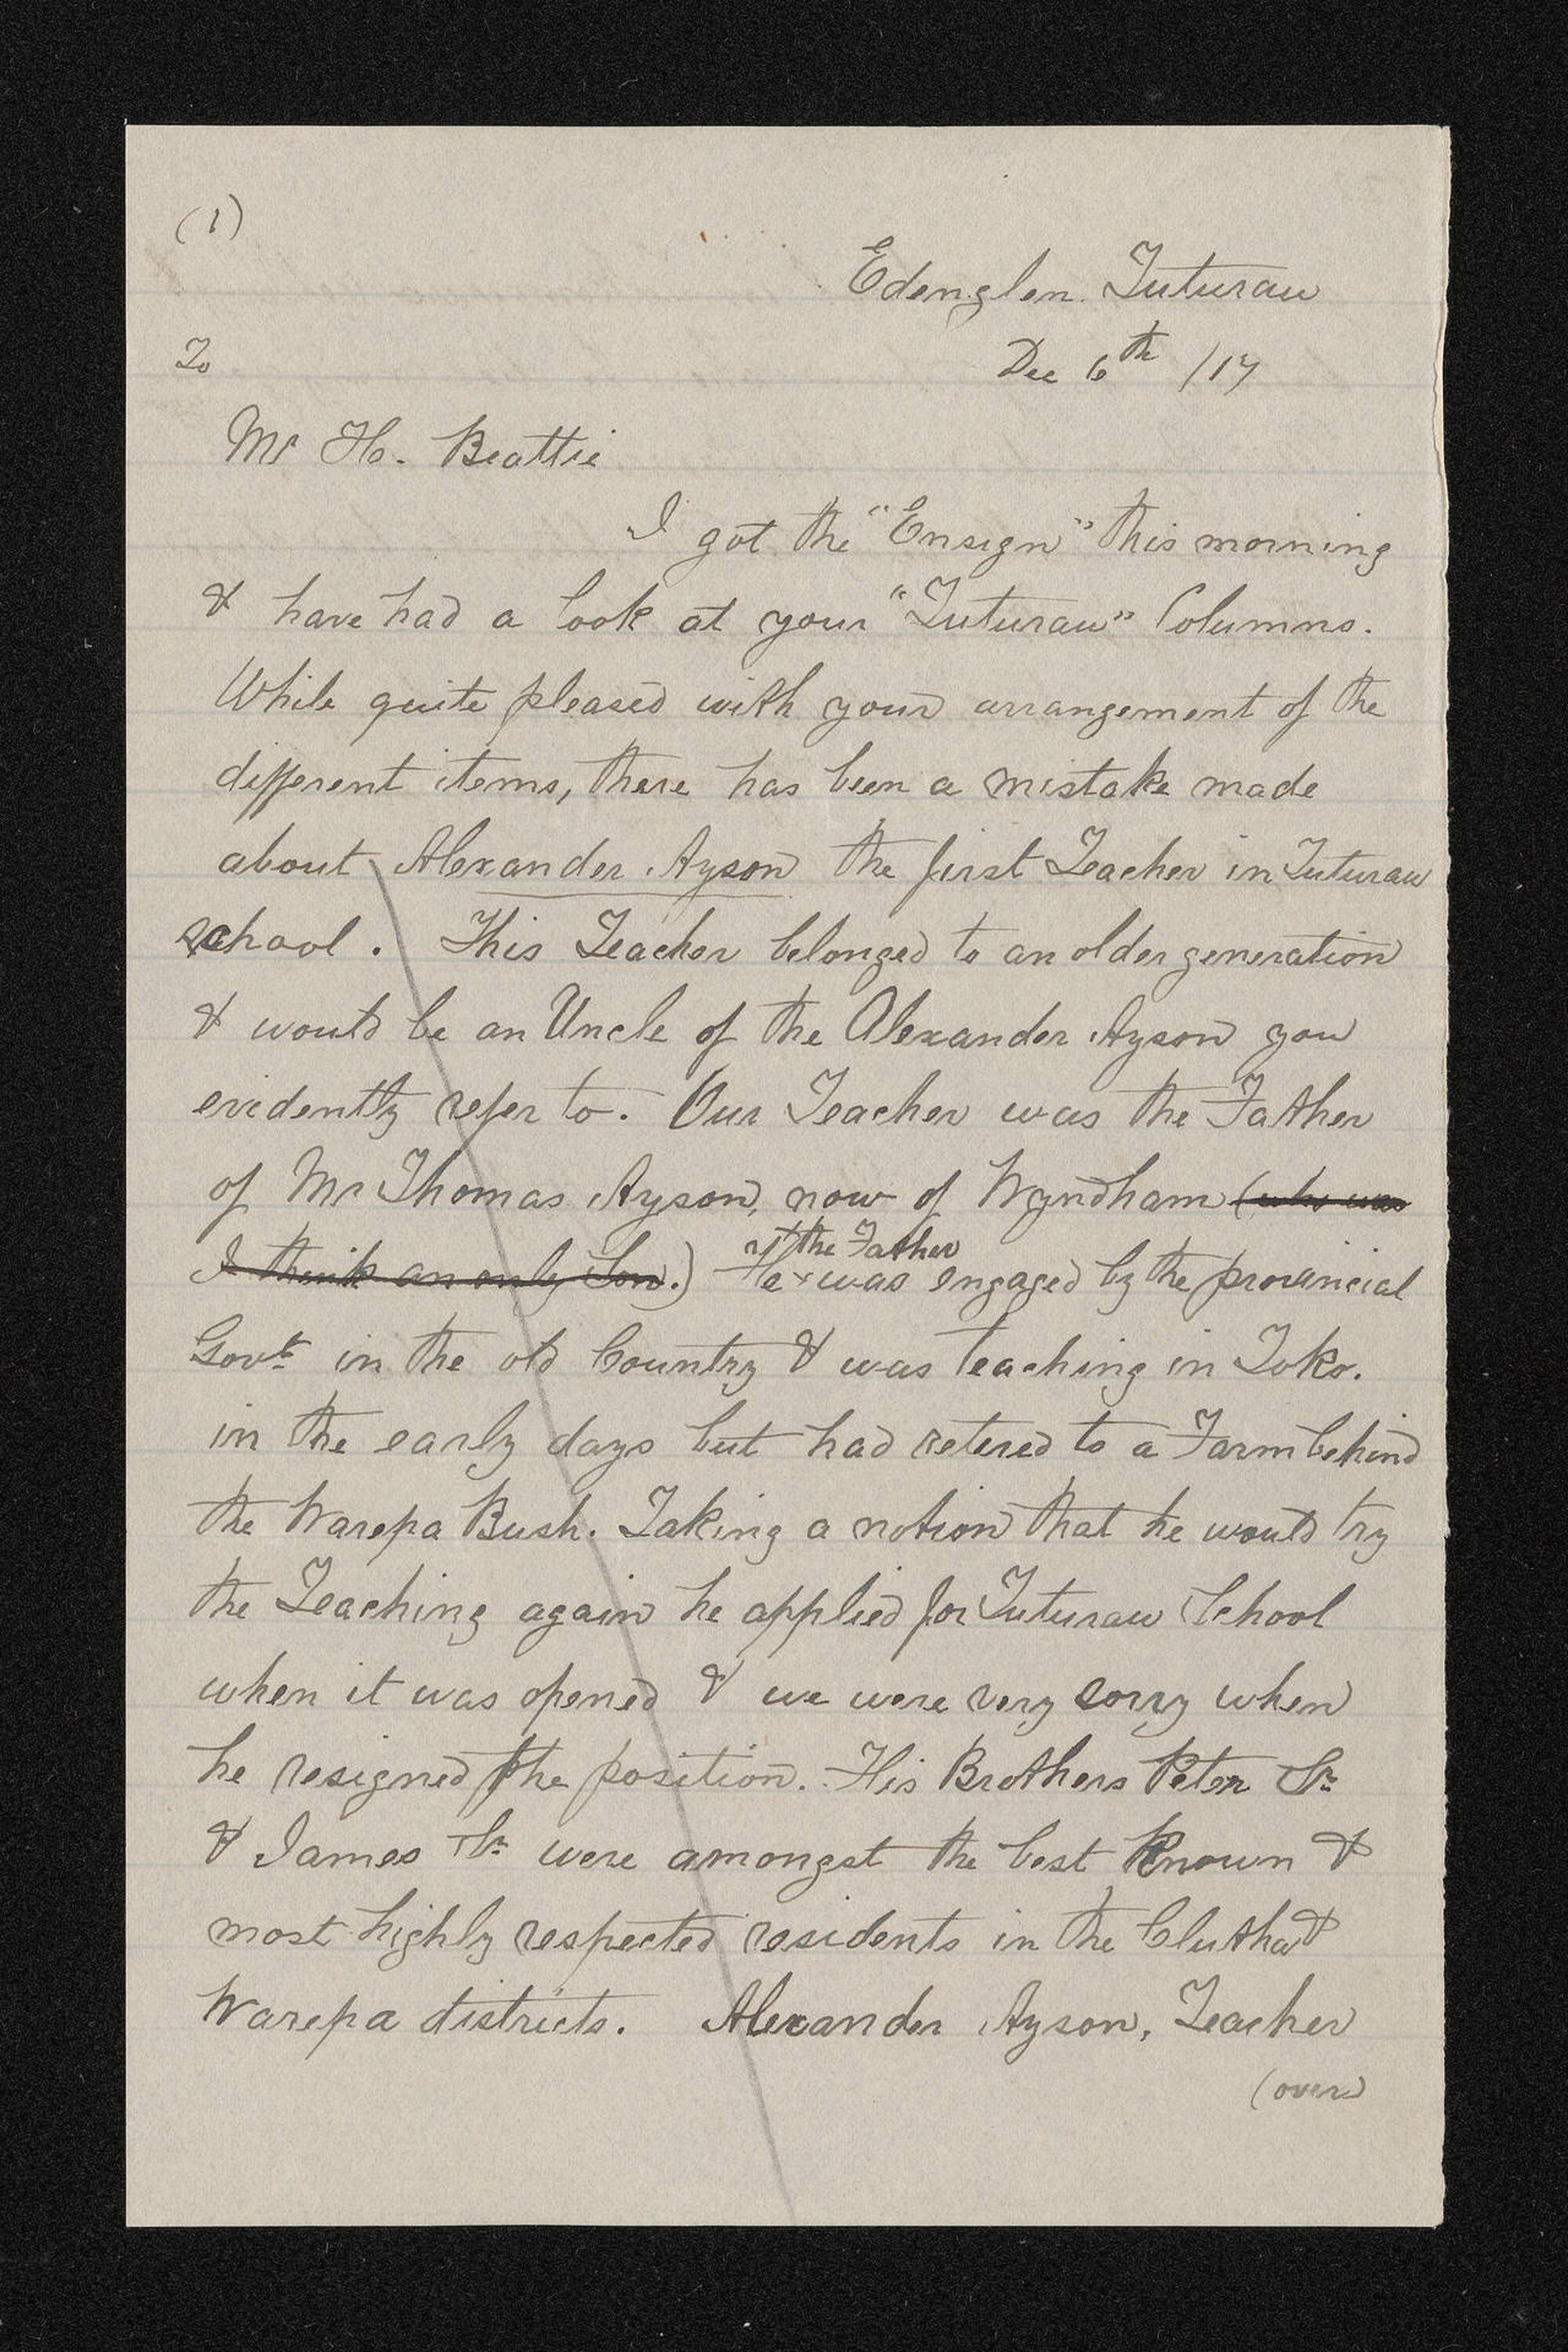 (1)
Edenglen. Tuturau
Dec 6th /17
To
Mr H. Beattie
I got the "Ensign" this morning
& have had a look at your "Tuturau" Columns.
While quite pleased with your arrangement of the
different items, there has been a mistake made
about Alexander Ayson the first Teacher in Tuturau
school. This Teacher belonged to an older generation
& would be an Uncle of the Alexander Ayson you
evidently refer to. Our Teacher was the Father
of Mr Thomas Ayson, now of Wyndham (who was
I think an only Son.) He was engaged by the provincial
the Father
Govt in the old Country & was teaching in Toko.
in the early days but had retered to a Farm behind
the Warepa Bush. Taking a notion that he would try
the Teaching again he applied for Tuturau School
when it was opened & we were very sorry when
he resigned the position. His Brothers Peter Sr
& James Sr were amongst the best known &
most highly respected residents in the Clutha &
Warepa districts. Alexander Ayson, Teacher
(over)